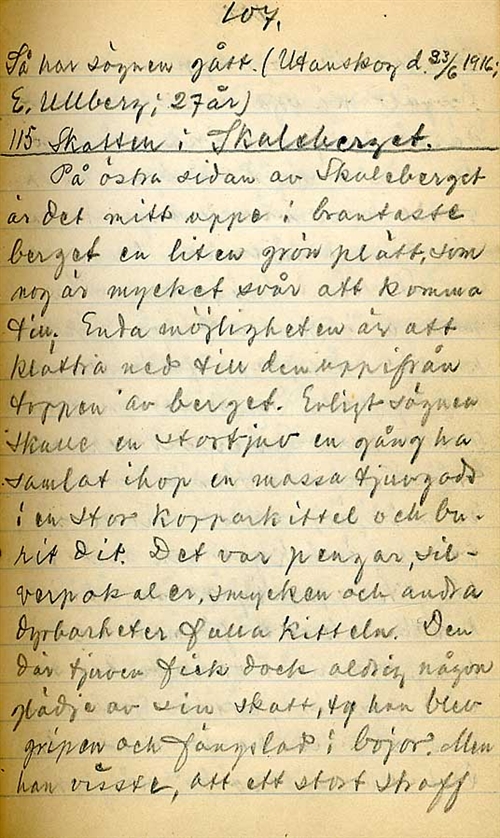 107.
Så har sägnen gått. (Utanskog d. 23/6 1916;
E. Ullberg; 27 år)
115 Skatten i Skuleberget.
På östra sidan av Skuleberget
är det mitt uppe i brantaste
berget en liten grön plätt, som
nog är mycket svår att komma
till. Enda möjligheten är att
klättra ned till den uppifrån
toppen av berget. Enligt sägnen
skulle en stortjuv en gång ha
samlat ihop en massa tjuvgods
i en stor kopparkittel och bu-
rit dit. Det var pengar, sil-
verpokaler, smycken och andra
dyrbarheter fulla kitteln. Den
där tjuven fick dock aldrig någon
glädje av sin skatt, ty han blev
gripen och fängslad i bojor. Men
han visste, att ett stort straff